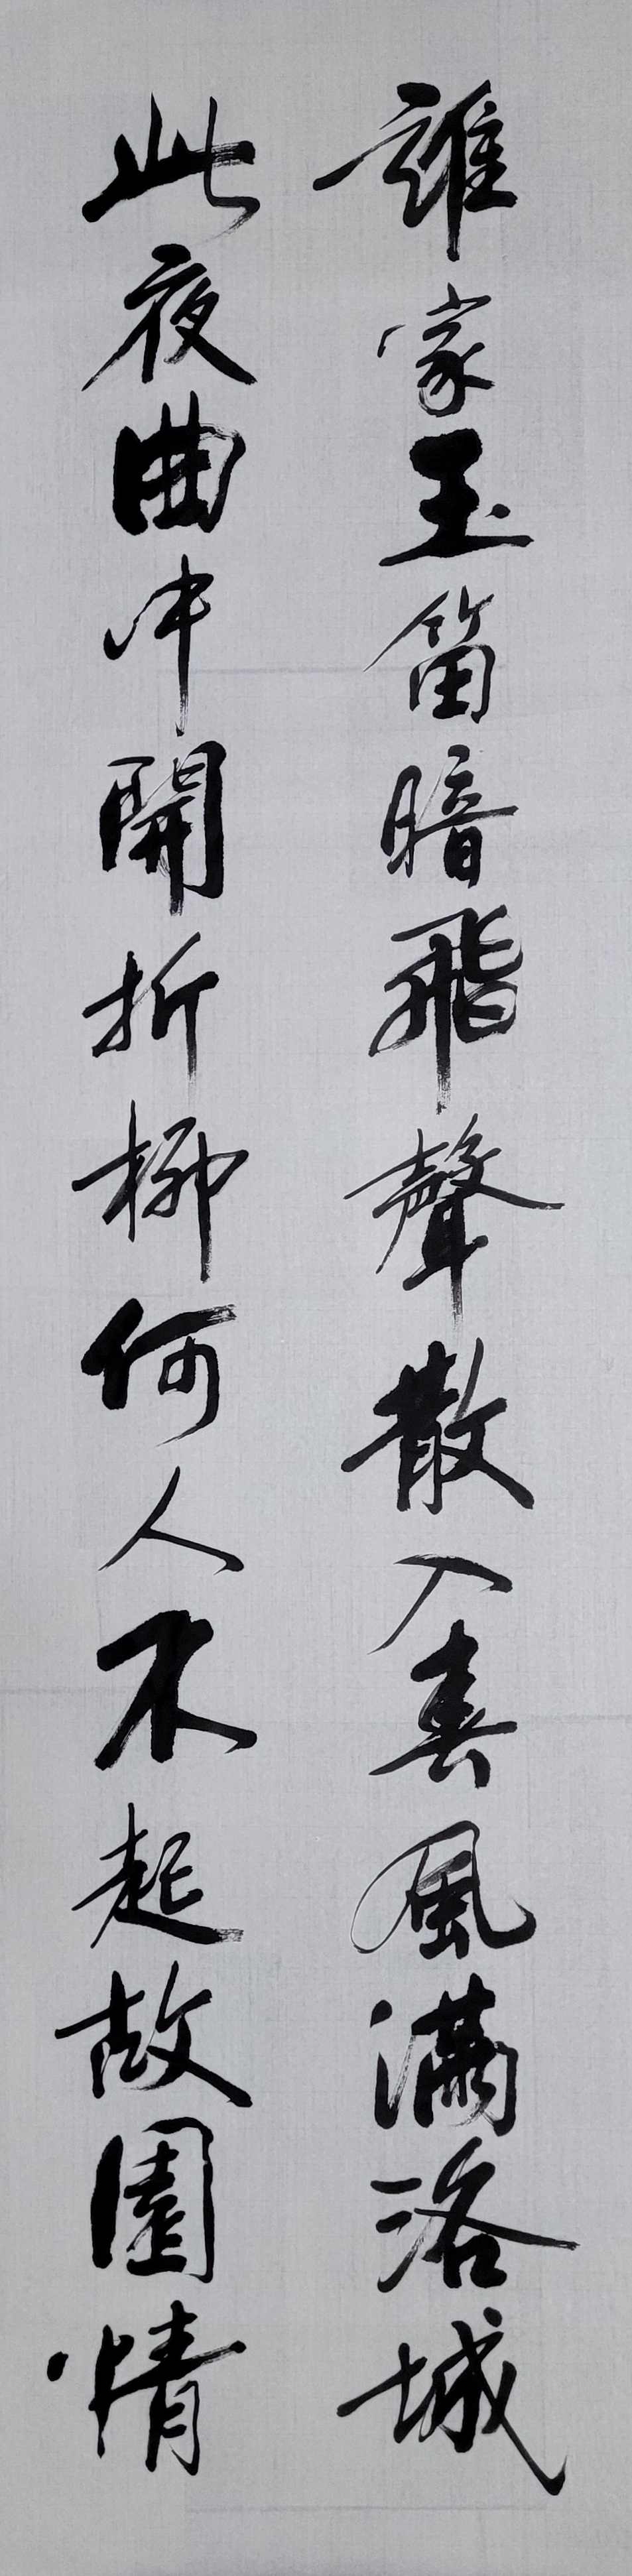 誰家玉笛暗飛聲散入春風滿洛城
此夜曲中開折柳何人不起故園情